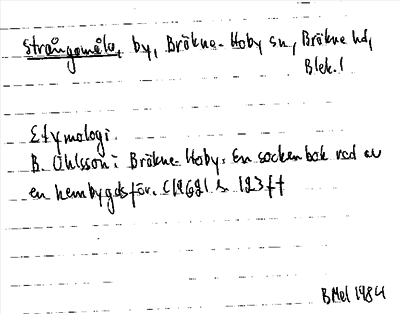 Strångamåla, by, Bräkne-Hoby sn, Bräkne hd,
Blek.l
Etymologi.
B. Ohlsson i Bräkne-Hoby. En sockenbok red av
en hembygdsför. (1962) s. 123 ff
BMel 1984